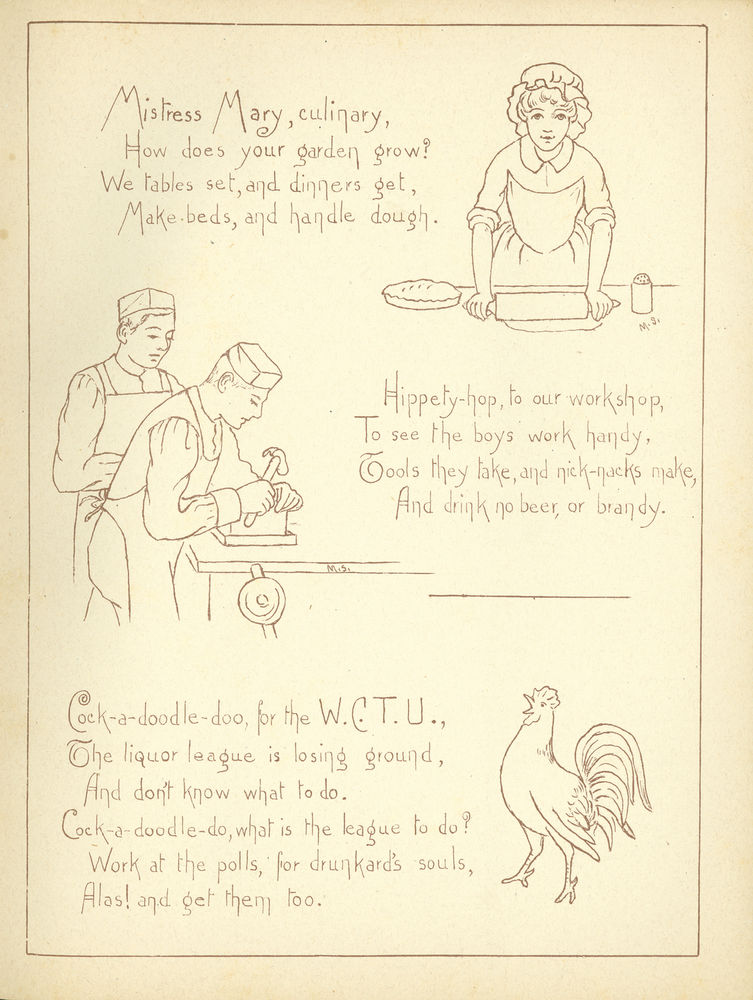 Mistress Mary, culinary,
How does your garden grow?
We tables set, and dinners get,
Make-beds, and handle dough.
M.S.
Hippety-hop, to our workshop,
To see the boys work handy,
Tools they take, and nick-nacks make,
And drink no beer, or brandy.
M.S.
Cock-a-doodle-doo, for the W.C.T.U.,
The liquor league is losing ground,
And don't know what to do.
Cock-a-doodle-do, what is the league to do?
Work at the polls, for drunkard's souls,
Alas! and get them too.